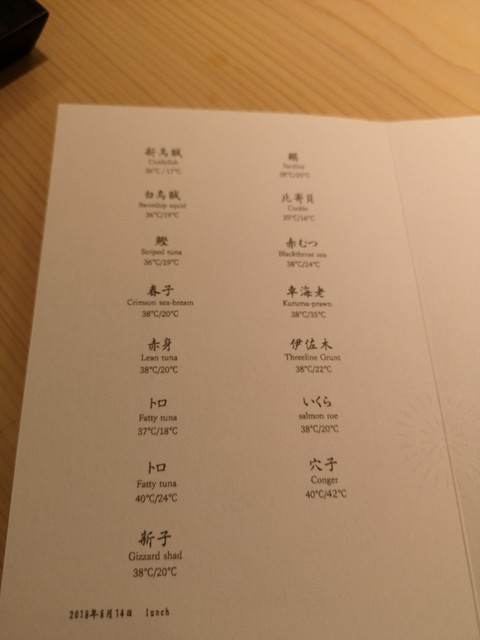 新烏賊
Cuttlefish
36℃/17℃
白烏賊
Swordtip squid
36℃/19℃
鰹
Striped tuna
36℃/19℃
春子
Crimson sea-bream
38℃/20℃
赤身
Lean tuna
38℃/20℃
トロ
Fatty tuna
37℃/18℃
トロ
Fatty tuna
40℃/24℃
新子
Gizzard shad
38℃/20℃
Sardine
Cockle
赤むつ
Blackthroat sea
38℃/24℃
車海老
Kuruma-prawn
38℃/35℃
伊佐木
Threeline Grunt
38℃/22℃
いくら
salmon roe
38℃/20℃
穴子
Conger
40℃/42℃
lunch